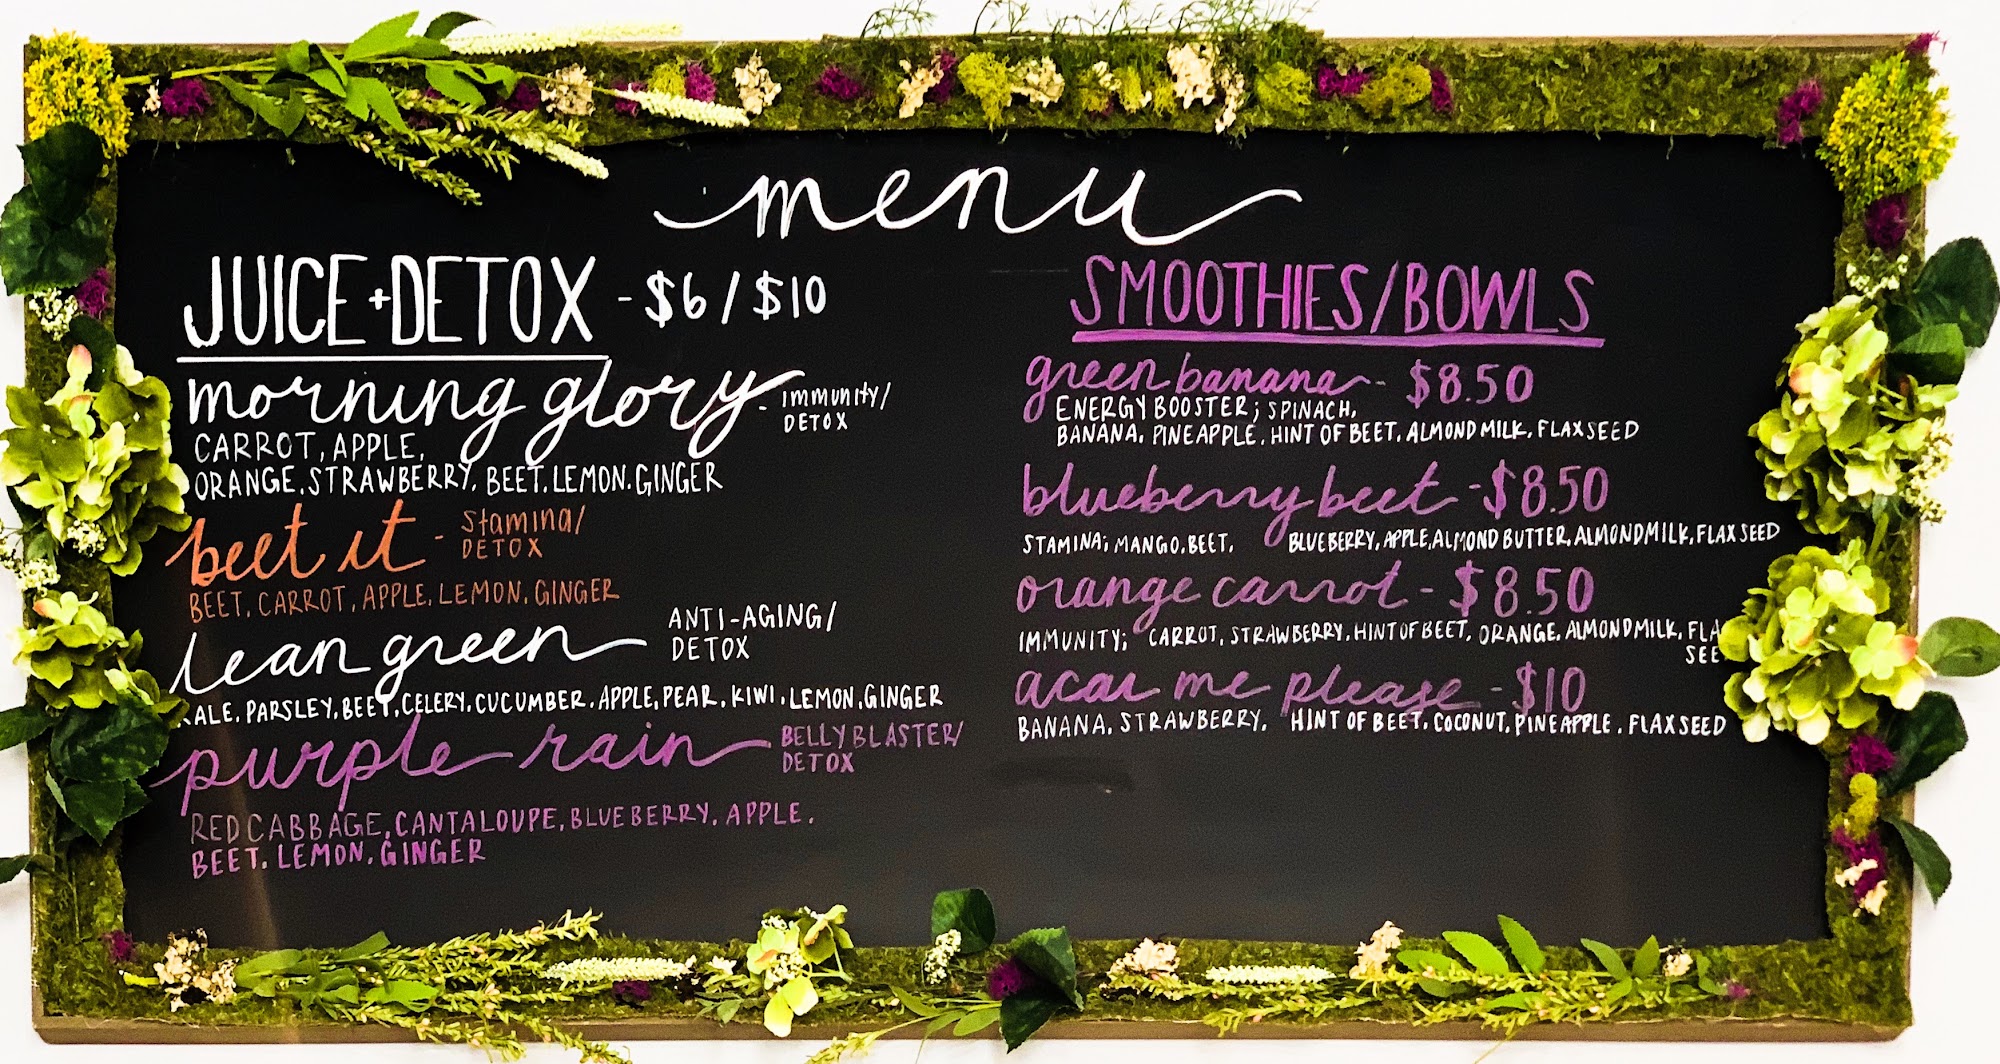 menu
JUICE+DETOX - $6/$10
morning glory - immunity/
DETOX
CARROT, APPLE,
ORANGE, STRAWBERRY, BEET, LEMON, GINGER
beet it - Stamina/
DETOX
BEET, CARROT, APPLE, LEMON, GINGER
lean green ANTI-AGING/
DETOX
KALE, PARSLEY, BEET, CELERY, CUCUMBER, APPLE, PEAR, KIWI, LEMON, GINGER
purple rain BELLY BLASTER/
DETOX
RED CABBAGE, CANTALOUPE, BLUEBERRY, APPLE,
BEET, LEMON, GINGER
SMOOTHIES/BOWLS
green banana - $8.50
ENERGY BOOSTER; SPINACH,
BANANA, PINEAPPLE, HINT OF BEET, ALMOND MILK, FLAXSEED
blueberry beet - $8.50
STAMINA; MANGO, BEET, BLUEBERRY, APPLE, ALMOND BUTTER, ALMOND MILK, FLAXSEED
orange carrot - $8.50
IMMUNITY; CARROT, STRAWBERRY, HINT OF BEET, ORANGE, ALMOND MILK, FLA
SEE
acai me please - $10
BANANA, STRAWBERRY, HINT OF BEET, COCONUT, PINEAPPLE, FLAXSEED